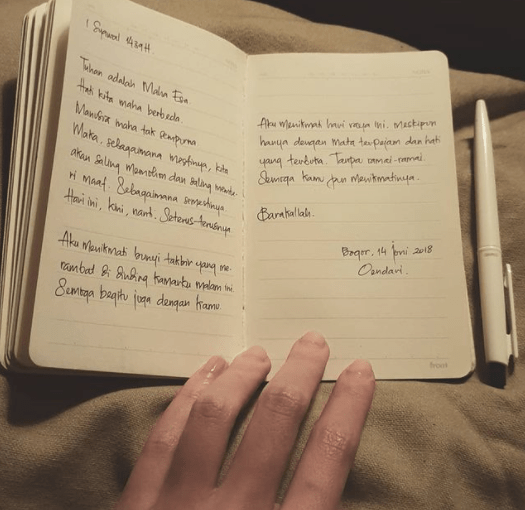 1 Syawal 1439H
Tuhan adalah Maha Esa
Hati kita maha berbeda
Manusia maha tak sempurna
Maka, sebagaimana mestinya, kita
akan saling memohon dan saling membe-
ri maaf. Sebagaimana semestinya.
Hari ini, kini, nanti. Seterus-terusnya.
Aku menikmati bunyi takbir yang me-
rambat di dinding kamarku malam ini.
Semoga begitu juga dengan kamu.
Aku menikmati hari raya ini. Meskipun
hanya dengan mata terpejam dan hati
yang terbuka. Tanpa ramai-ramai.
Semoga kamu pun menikmatinya.
Barakallah.
Bogor, 14 Juni 2018
Oendari.